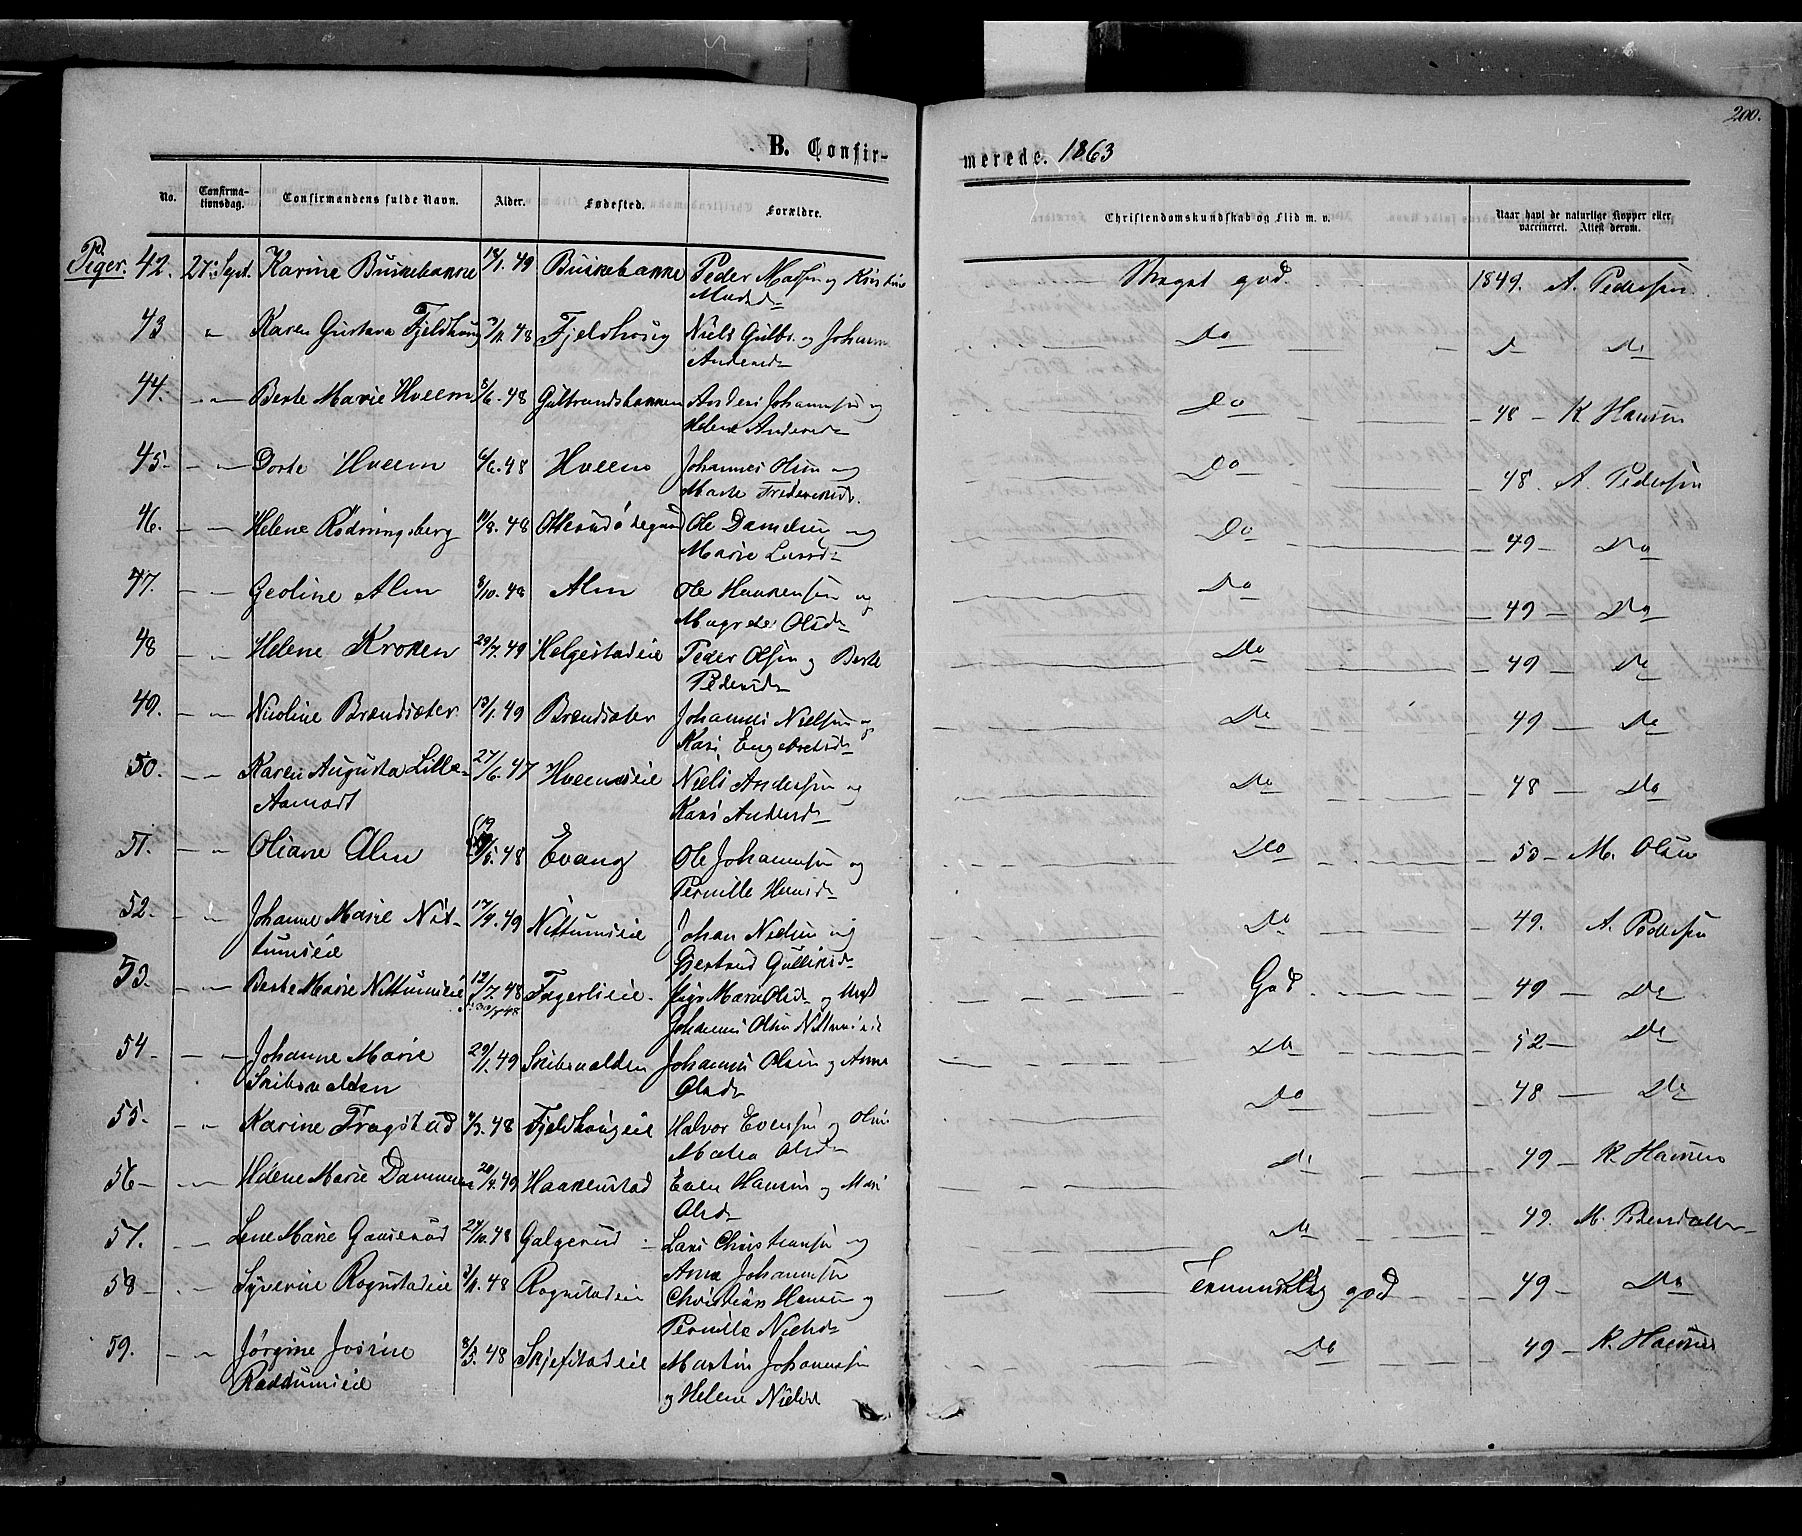 200.
B. Confirmerede. 1863
No. Confirmationsdag. Confirmandens fulde Navn. Alder. Fødested. Forældre. Christendomskundskab og Flid m. v. Naar havt de naturlige Kopper eller vaccineret. Attest derom.
Piger. 42. 27. Sept. Karine Buskebakke 1/49 Buskebakke Peder og Meget god 1849. A. Pedersen
43 " Karen Gustava Fjeldhoug 48 Fjeldhoug Niels Gulbr. og Johanne Andersd. Do D Do
44. " Berte Marie Hveem 6 48 Anders Johannesen og Helene Andersd. Do 48 K Hansen
45. " Dorte Hveem 6/6.48 Hveem Johannes Olsen og Marte Frederiksd. Do 48. A. Pedersen
46. " Helene Rødningsberg 8.48 Ole Danielsen og Marie Larsd. Do 49 Do
47. " Geoline Alm 8/10.48 Alm Ole Haakensen og Magrete Olsd. Do 49 Do
48 " Helene Kroken 29/7.49 Helgestadeie Peder Olsen og Berte Pedersd. Do 49 Do
49. " Nicoline Brændsæter 13/1.49 Brændsæter Johannes Nielsen og Kari Engebretsd. Do 49 Do
50. " Karen Augusta Lille-Aamodt 27/6.47 Hveemseie Niels Andersen og Kari Andersd. Do 48 Do
51. " Oliane Alm 5.48 Evang Ole Johannesen og Pernille Hansd. Do 53 M. Olsen
52. " Johanne Marie Nittumseie 17/4.49 Nittumseie Johan Nielsen og Gertrud Gulliksd. Do 49. A. Pedersen
53. " Berte Marie Nittumseie 12/7.48 Fagerlieie Pige Marie Olsd. og Ungk. Johannes Olsen Nittumseie God 49 Do
54 " Johanne Marie Skibsvolden 29/1.49 Skibsvolden Johannes Olsen og Anne Olsd. Do 52 Do
55. " Karine Fragstad 3.48 Fjeldhougeie Halvor Evensen og Olsd. Do 48 Do
56 " Helene Marie Dammen 20/4.49 Haakenstad Even Hansen og Mari Olsd. Do 49 K. Hansen
57. " Lene Marie 48 Galgerud Lars Christiansen og Anne Johannesen Do 49. M. Pedersdatter
58 " Syverine Rognstadeie 48 Rognstadeie Christian Hansen og Pernille Nielsd. Temmelig god 49 Do
59. " Jørgine Josine Raddumseie 8/5.48 Skjefstadeie Martin Johannesen og Helene Nielsd Do 49 K. Hansen